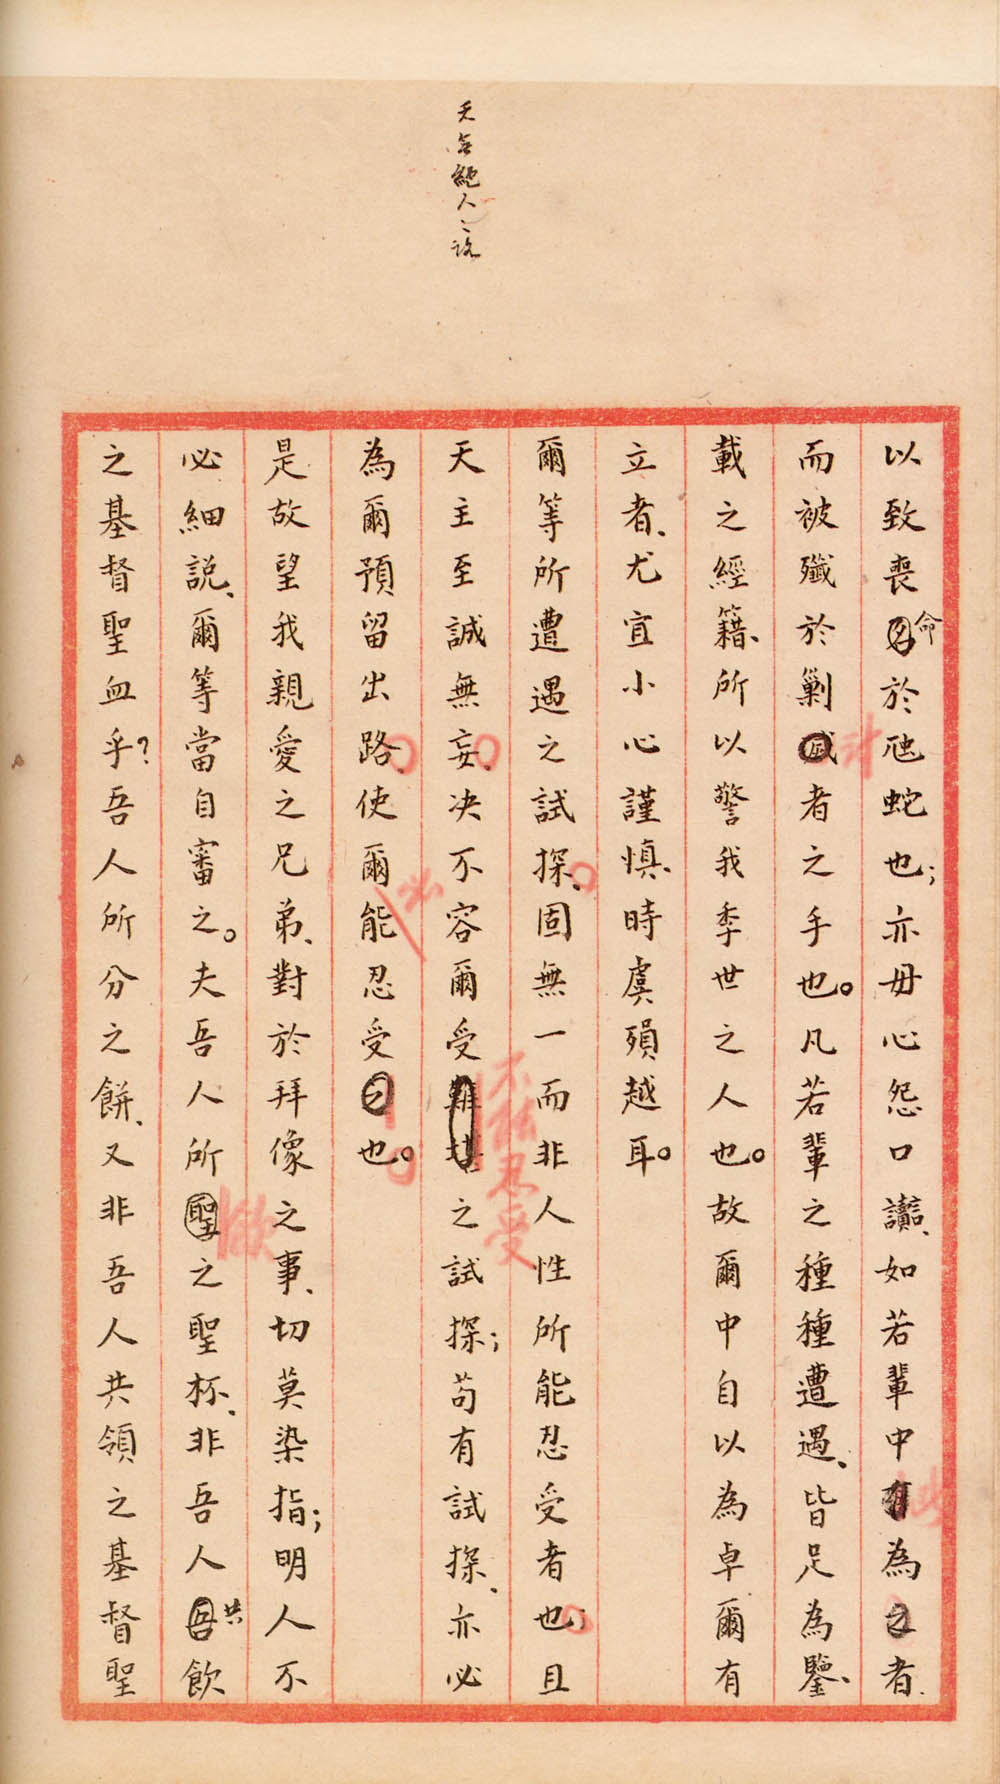 天無絕人之說
以致喪命於虺蛇也；亦毋心怨口讟、如若輩中為者、
而被殲於剿者之手也。凡若輩之種種遭遇、皆足為鑒、
載之經籍、所以警我季世之人也。故爾中自以為卓爾有
立者、尤宜小心謹慎、時虞殞越耳。
爾等所遭遇之試探、固無一而非人性所能忍受者也；且
天主至誠無妄、决不容爾受不能忍受之試探；苟有試探、亦必
為爾預留出路、使爾必能忍受也。
是故望我親愛之兄弟、對於拜像之事、切莫染指；明人不
必細說、爾等當自審之。夫吾人所飲之聖杯、非吾人共飲
之基督聖血乎？吾人所分之餅、又非吾人共領之基督聖